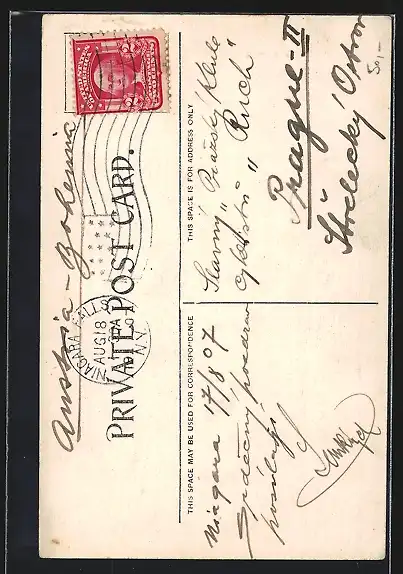 PRIVATE POST CARD.
Austria – Bohemia
NIAGARA FALLS
AUG 18
N.Y.
THIS SPACE MAY BE USED FOR CORRESPONDENCE
THIS SPACE IS FOR ADDRESS ONLY
Niagara 17/8 07
Srdečný pozdrav
posílají
Slavný „Pražský Klub
cyklistů „Ruch“
Prague-II
Střelecký Ostrov
50,-